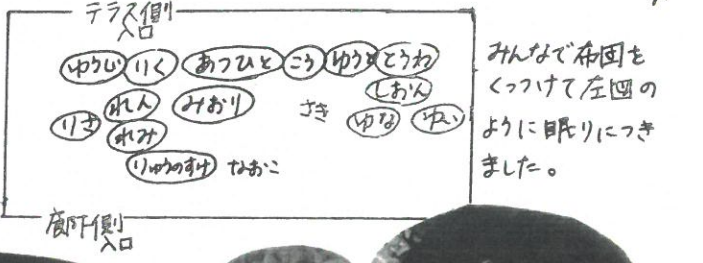 テラス側
入口
ゆうじ りく あつひと こう ゆうと とうわ
れん みおり さき しおん
りさ れみ ゆな ゆい
りゅうのすけ なおこ
廊下側
入口
みんなで布団を
くっつけて左図の
ように眠りにつき
ました。